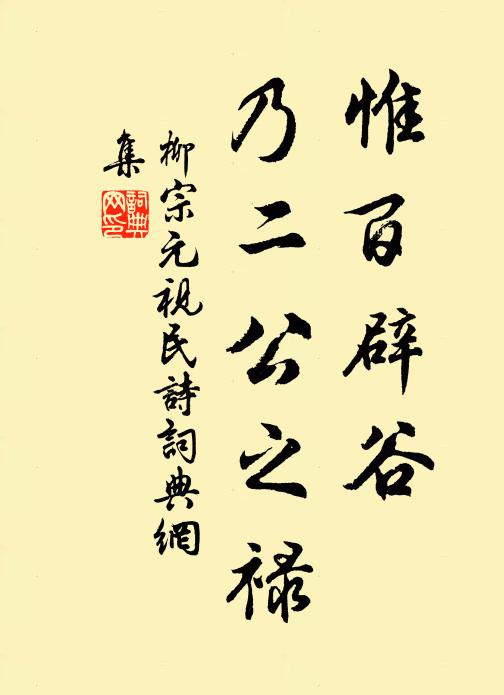 惟百辟谷
乃二公之禄
柳宗元視民詩詞典網
集
詞典
网印